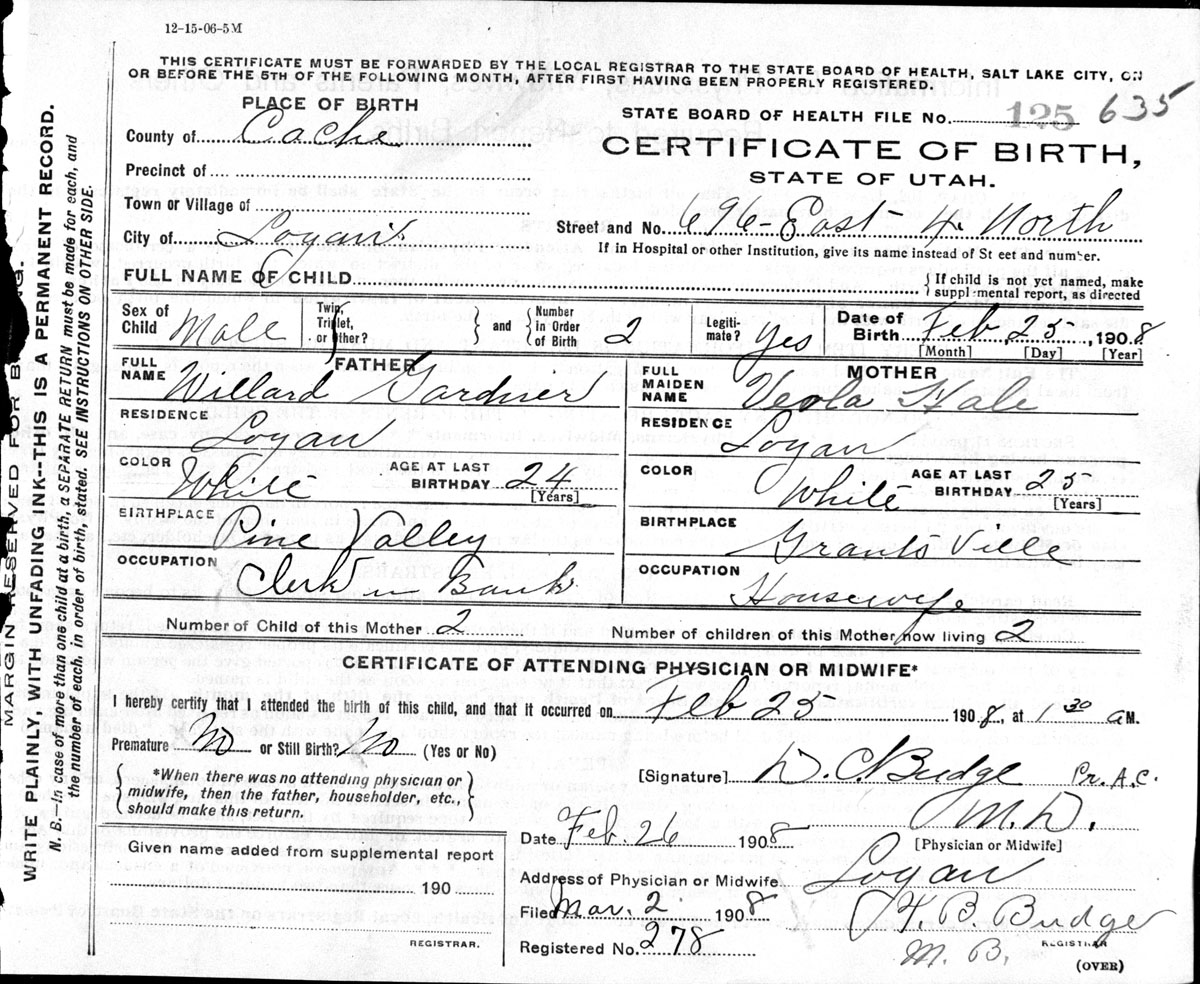 12-15-06-5M
THIS CERTIFICATE MUST BE FORWARDED BY THE LOCAL REGISTRAR TO THE STATE BOARD OF HEALTH, SALT LAKE CITY, ON
OR BEFORE THE 5TH OF THE FOLLOWING MONTH, AFTER FIRST HAVING BEEN PROPERLY REGISTERED.
PLACE OF BIRTH
STATE BOARD OF HEALTH FILE No. 125 635
County of Cache
CERTIFICATE OF BIRTH,
STATE OF UTAH.
Precinct of
Town or Village of
Street and No. 696-East 4 North
City of Logan
If in Hospital or other Institution, give its name instead of St eet and number.
FULL NAME OF CHILD
{If child is not yet named, make
supplemental report, as directed
Sex of Child Male
Twin, Triplet, or Other? } and { Number in Order of Birth 2
Legiti-mate? yes
Date of Birth Feb 25, 1908
[Month] [Day] [Year]
FATHER
FULL NAME Willard Gardner
RESIDENCE Logan
COLOR White
AGE AT LAST BIRTHDAY 24
[Years]
BIRTHPLACE Pine Valley
OCCUPATION Clerk in Bank
MOTHER
FULL MAIDEN NAME Veola Hale
RESIDENCE Logan
COLOR White
AGE AT LAST BIRTHDAY 25
[Years]
BIRTHPLACE Grants Ville
OCCUPATION Housewife
Number of Child of this Mother 2
Number of children of this Mother now living 2
CERTIFICATE OF ATTENDING PHYSICIAN OR MIDWIFE*
I hereby certify that I attended the birth of this child, and that it occurred on Feb 25 1908, at 1 30 AM.
Premature No or Still Birth? No (Yes or No)
{*When there was no attending physician or
midwife, then the father, householder, etc.,
should make this return.}
[Signature] D. C. Budge Pr. A.C.
M.D.
[Physician or Midwife]
Date Feb. 26 1908
Address of Physician or Midwife Logan
Given name added from supplemental report
190
REGISTRAR.
Filed Mar. 2 1908
Registered No. 278
H. B. Budge
M. B. REGISTRAR
(OVER)
MARGIN RESERVED FOR BINDING.
WRITE PLAINLY, WITH UNFADING INK--THIS IS A PERMANENT RECORD.
N. B. In case of more than one child at a birth, a SEPARATE RETURN must be made for each, and
the number of each, in order of birth, stated. SEE INSTRUCTIONS ON OTHER SIDE.